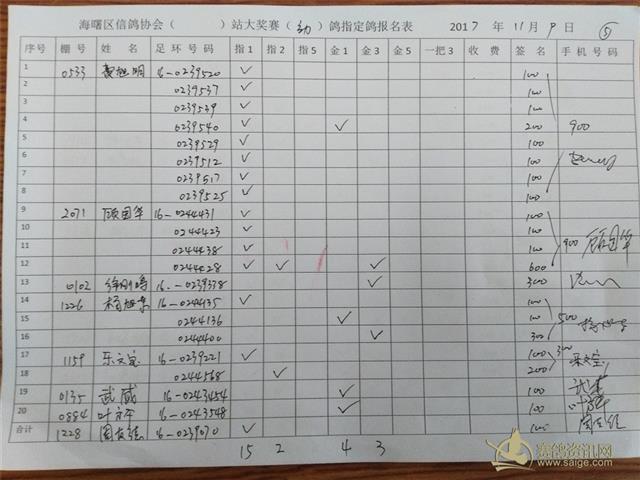 海曙区信鸽协会（ ）站大奖赛（幼）鸽指定鸽报名表 2017 年 11 月 9 日 ⑤
序号 棚号 姓名 足环号码 指1 指2 指5 金1 金2 金3 一把3 收费 签名 手机号码
1 0533 16-0239520 ✓ 100
2 0239537 ✓ 100
3 0239539 ✓ 100
4 0239540 ✓ ✓ 200 900
5 0239529 ✓ 100
6 0239512 ✓ 100
7 0239517 ✓ 100
8 0239525 ✓ 100
9 2071 顾国华 16-0244431 ✓ 100
10 0244423 ✓ 100
11 0244438 ✓ 100 900 顾国华
12 0244428 ✓ ✓ ✓ 600
13 0102 16-0239378 ✓ 300
14 1226 16-0244435 ✓ 100
15 0244136 ✓ 100 500
16 0244400 ✓ 300
17 1159 乐文宝 16-0239221 ✓ 100 300
18 0244568 ✓ 200 乐文宝
19 0135 武威 16-0243454 ✓ 100
20 0884 16-0243548 ✓ 100
合计 1228 16-0239070 ✓ 100
15 2 4 3
赛鸽资讯网
www.saige.com